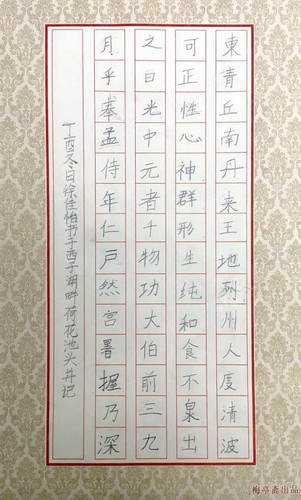 東青丘南丹来王地列州人度清波
可正性心神群形生纯和食不泉出
之日光中元者千物功大伯前三九
月乎奉孟侍年仁户然宫署握乃深
丁酉冬日徐佳怡书于西子湖畔荷花池头并记
梅亭斋出品